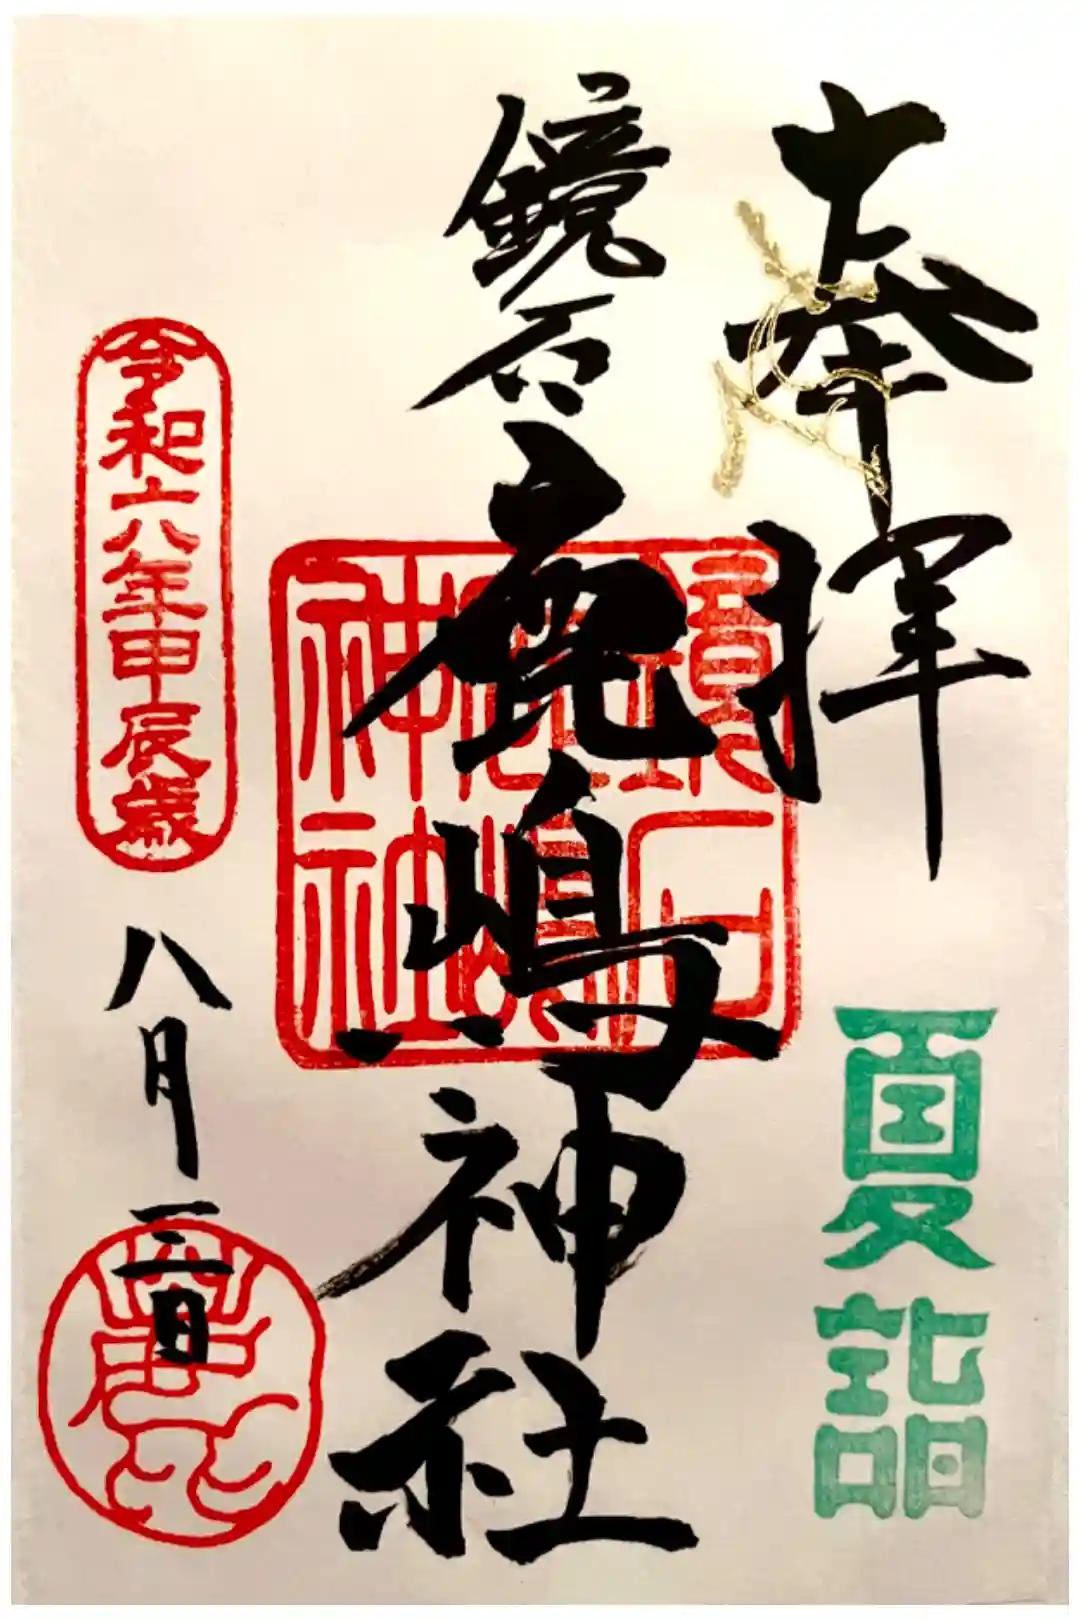 奉拝
夏詣
鏡石鹿嶋神社
鏡石
鹿嶋
神社
令和六年甲辰歳
八月三日